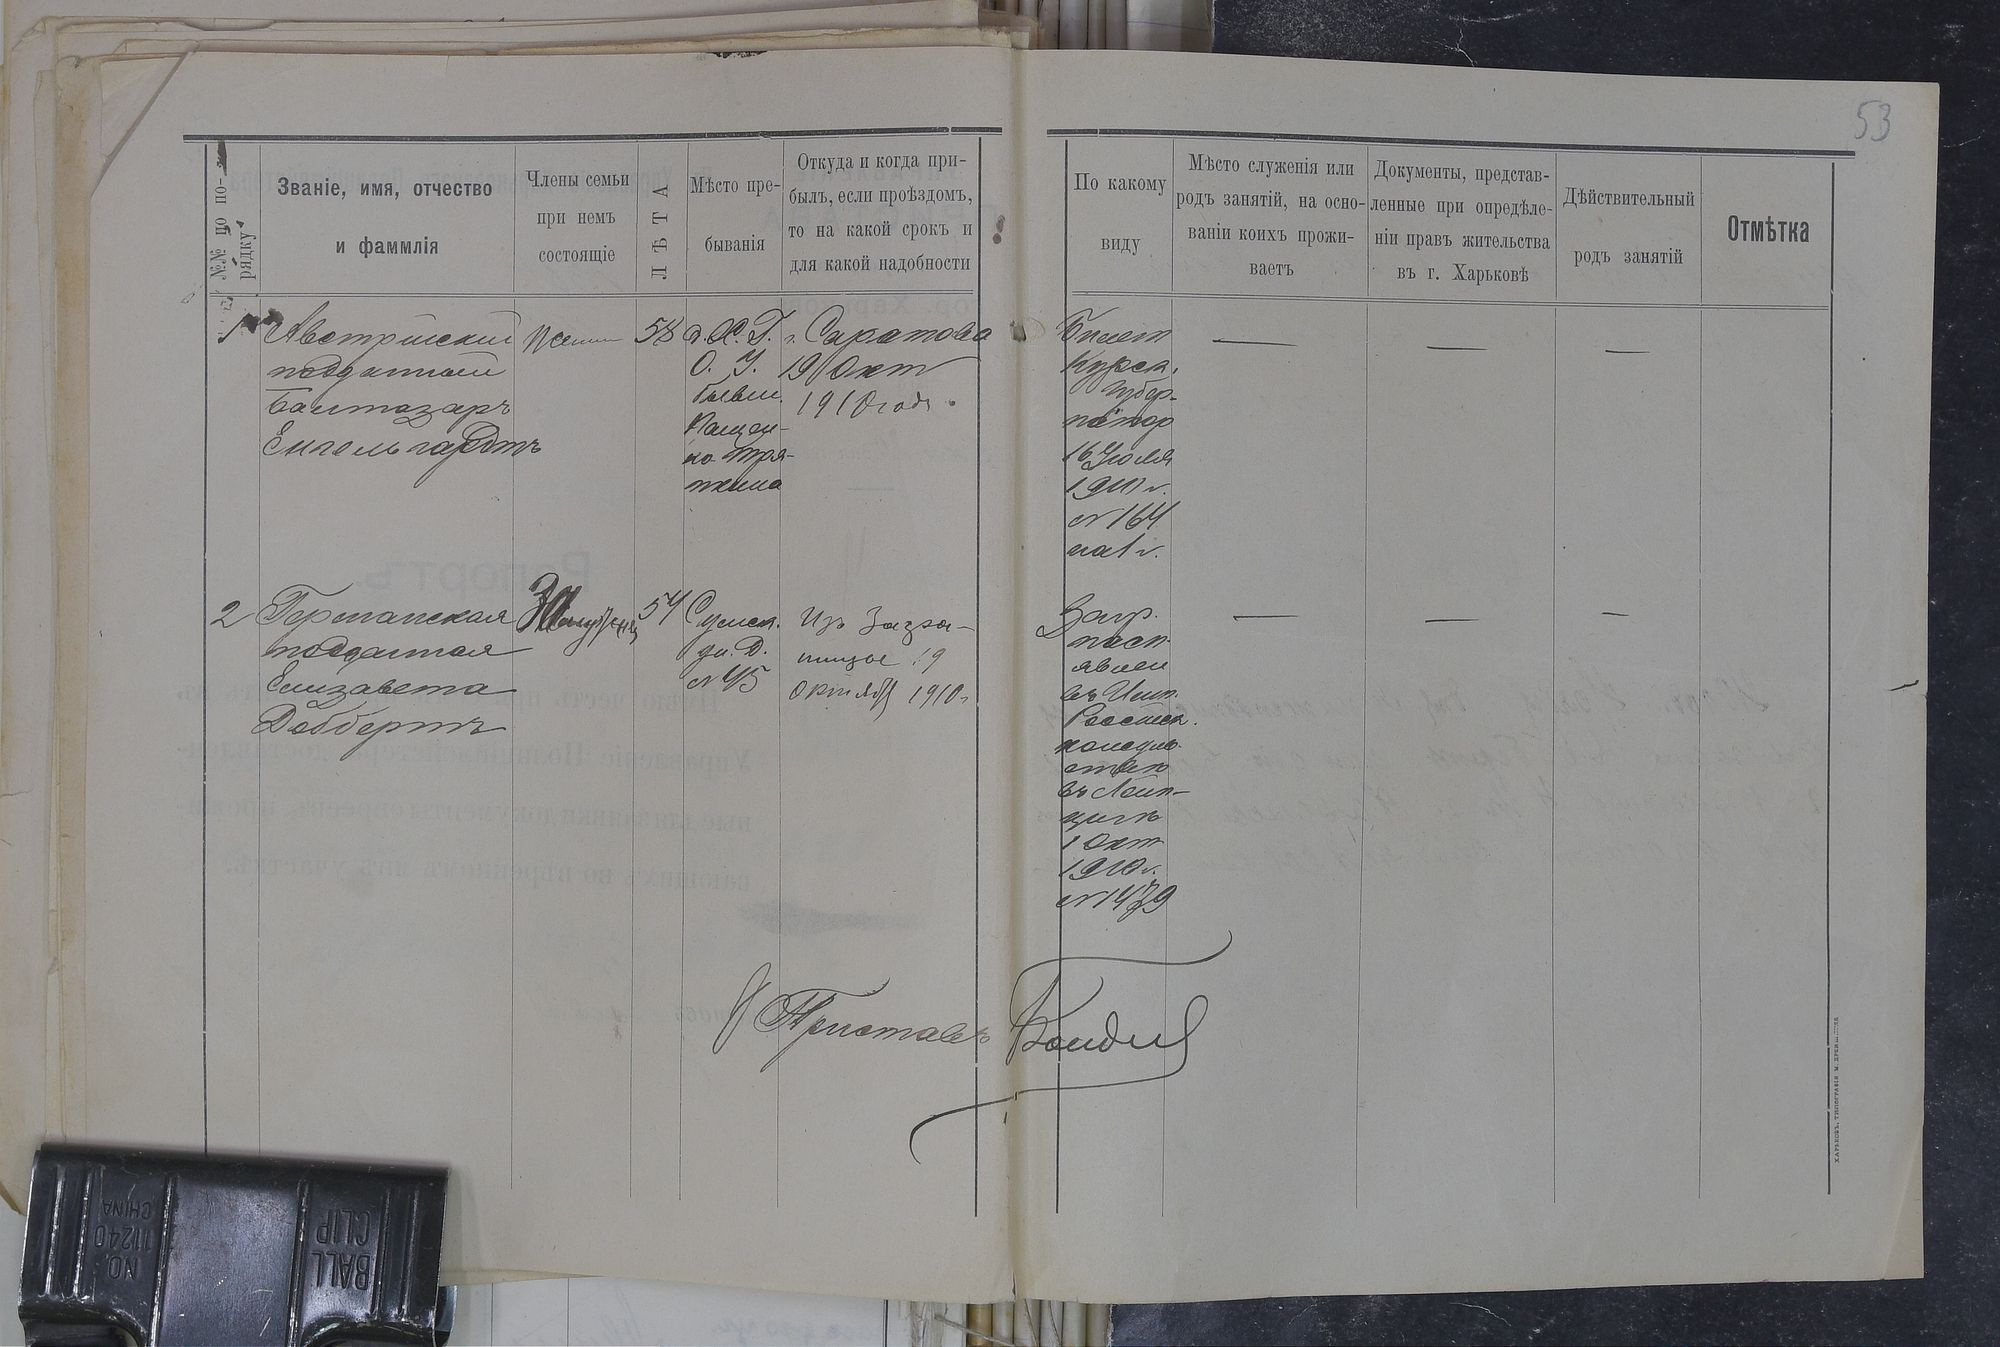 53
№№ по по-
рядку
Званіе, имя, отчество
и фаммлія
Члены семьи
при немъ
состоящіе
ЛѢТА
Мѣсто пре-
быванія
Откуда и когда при-
былъ, если проѣздомъ,
то на какой срокъ и
для какой надобности
По какому
виду
Мѣсто служенія или
родъ занятій, на осно-
ваніи коихъ прожи-
ваетъ
Документы, представ-
ленные при опредѣле-
ніи правъ жительства
въ г. Харьковѣ
Дѣйствительный
родъ занятій
Отмѣтка
1
Австрійскій
подданный
Балтазаръ
Енгельгардтъ
58
О. У.
бывш.
Пащен-
ко-Тря-
пкина
г. Саратова
19 Окт
1910 года.
Билет
Курск.
Губер-
натор
16 Юля
1910 г.
№ 164
на 1 г.
2
Германская
подданная
Елизавета
Доббертъ
54
Сумск.
ул. д.
№ 45
Изъ Загра-
ницы 19
октября 1910 г.
Загр.
пасп.
явлен
въ Имп.
Россійск.
консуль-
ствѣ
въ Лейп-
цигѣ
1 Окт
1910 г.
№ 1479
Приставъ
ХАРЬКОВЪ, ТИПОГРАФІЯ М.
BALL
CLIP
NO.
11240
CHINA